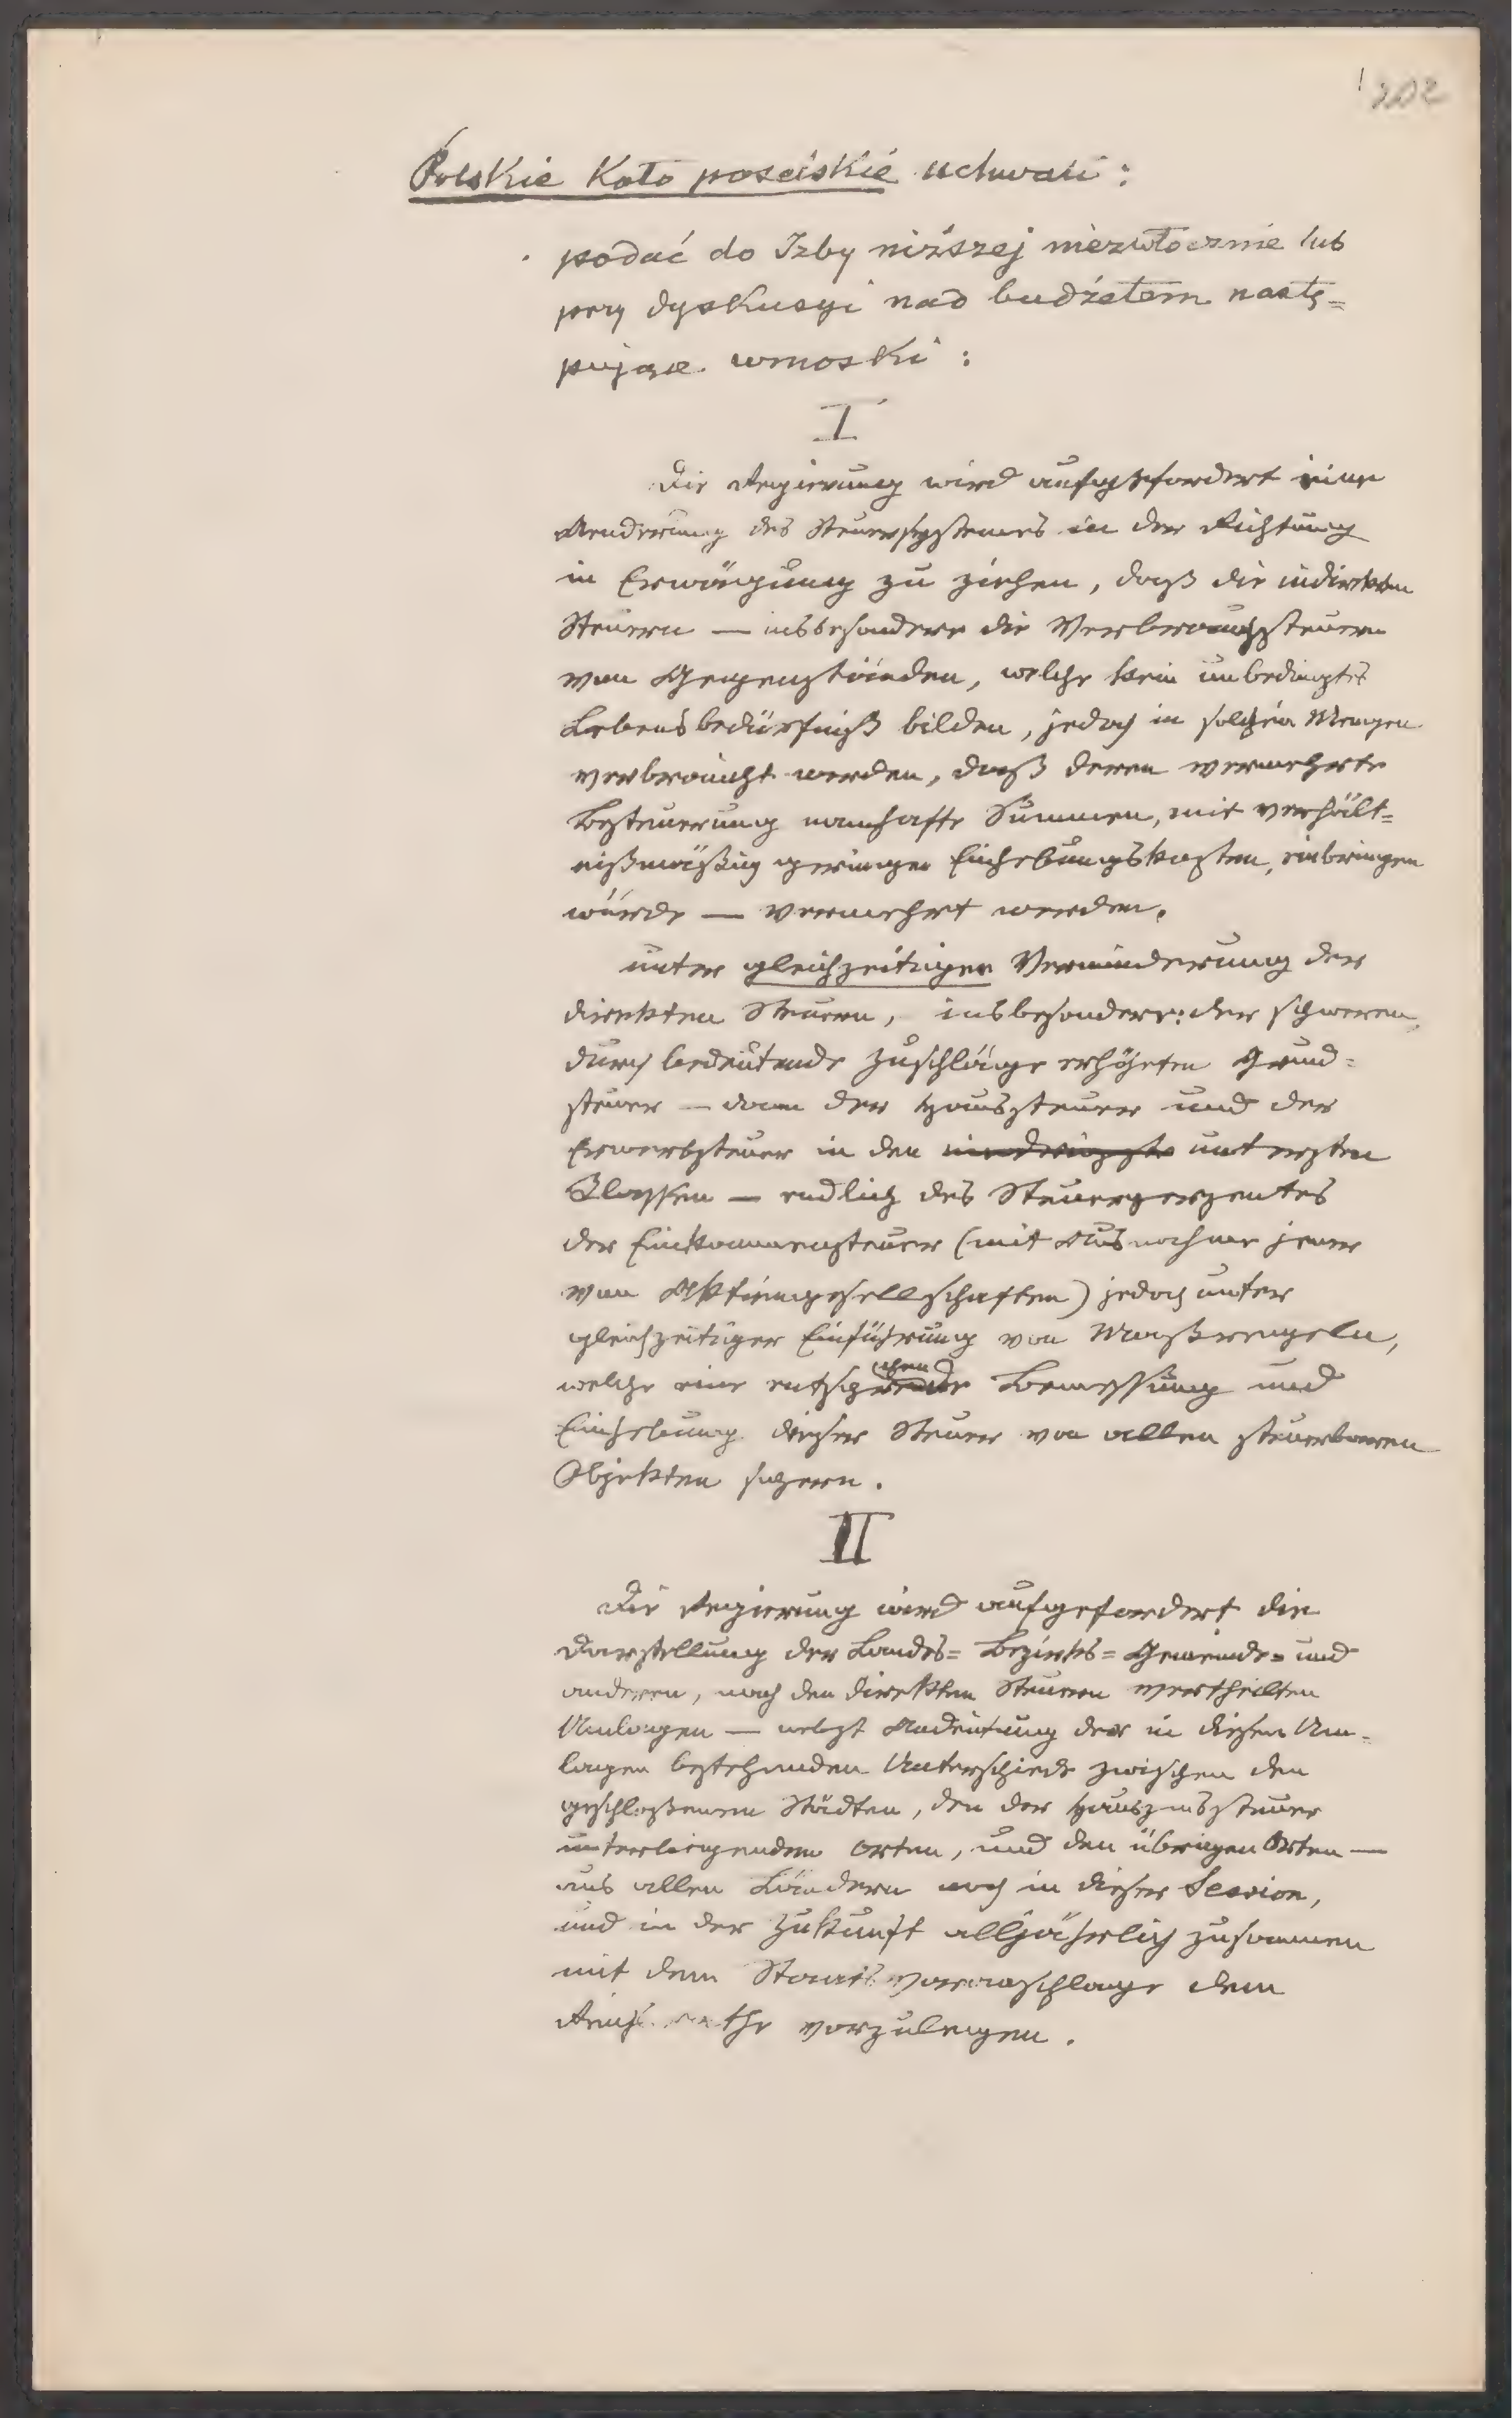 202
Polskie Koło poselskie uchwali:
podać do Izby niższej niezwłocznie lub
przy dyskusyi nad budżetem nastę=
pujące wnioski:
I
Die Regierung wird aufgefordert eine
Aenderung des Steuersystemes in der Richtung
in Erwägung zu ziehen, daß die indirekten
Steuern — insbesondere die Verbrauchssteuern
von Gegenständen, welche kein unbedingtes
Lebensbedürfniß bilden, jedoch in solchen Mengen
verbraucht werden, daß deren vermehrte
Besteuerung namhafte Summen, mit verhält=
nißmäßig geringen Einhebungskosten, einbringen
würde — vermehrt werden,
unter gleichzeitiger Verminderung der
direkten Steuern, insbesondere: der schweren,
durch bedeutende Zuschläge erhöhten Grund=
steuer — dann der Haussteuer und der
Erwerbsteuer in den niedrigste untersten
Klassen — endlich des Steuerperzentes
der Einkommensteuer (mit Ausnahme jener
von Aktiengesellschaften) jedoch unter
gleichzeitiger Einführung von Maßregeln,
welche eine entsprechende Bemessung und
Einhebung dieser Steuer von allen steuerbaren
Objekten sichern.
II
Die Regierung wird aufgefordert die
Darstellung der Landes= Bezirks= Gemeinde= und
anderen, nach den direkten Steuern vertheilten
Umlagen — nebst Andeutung der in diesen Um=
lagen bestehenden Unterschiede zwischen den
geschloßenen Städten, den der Hauszinssteuer
unterliegenden Orten, und den übrigen Orten —
aus allen Ländern noch in dieser Session,
und in der Zukunft alljährlich zusammen
mit dem Staatsvoranschlage dem
Reichsrathe vorzulegen.